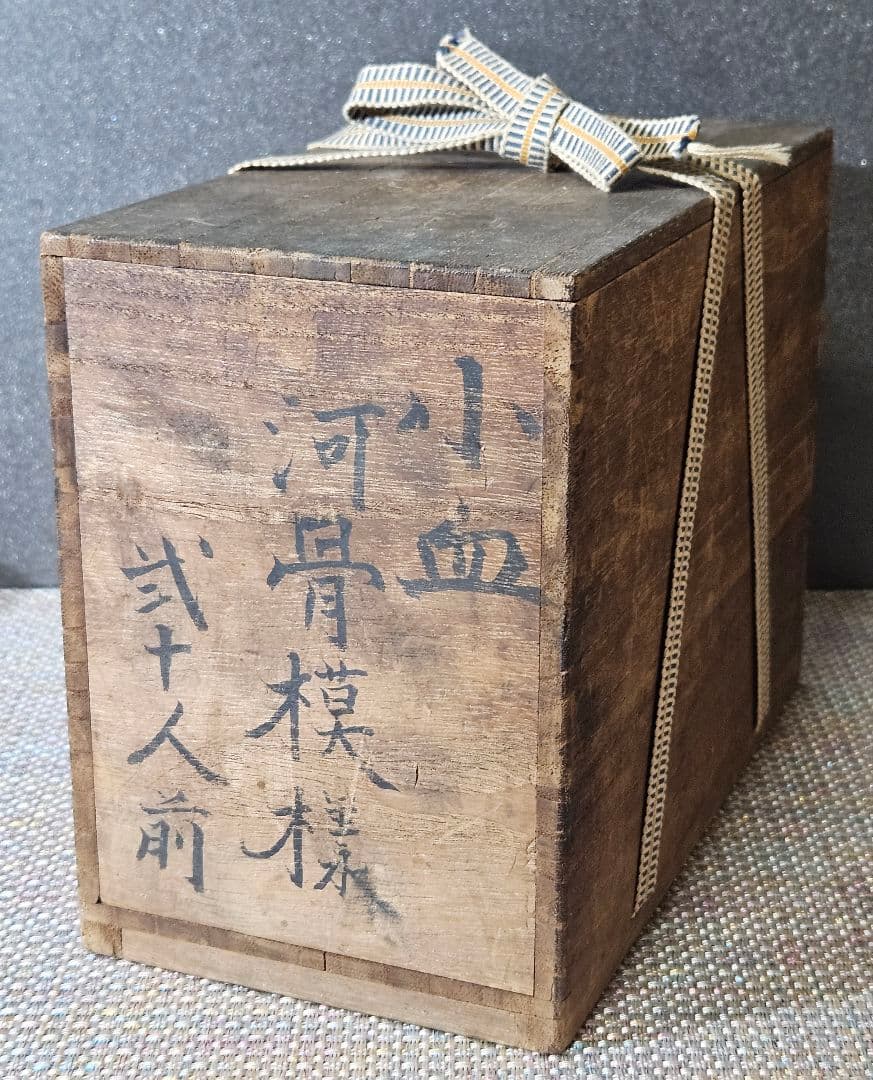 小血
河骨模様
弐十人前